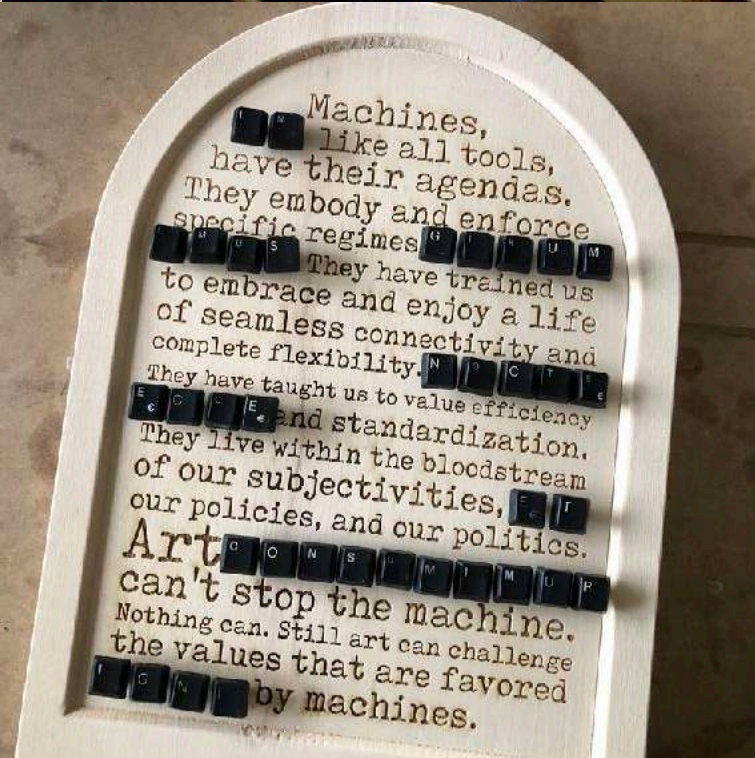 Machines,
IN like all tools,
have their agendas.
They embody and enforce
specific regimes GIRUM
IMUS They have trained us
to embrace and enjoy a life
of seamless connectivity and
complete flexibility. NOCTE
They have taught us to value efficiency
ECCE and standardization.
They live within the bloodstream
of our subjectivities, ET
our policies, and our politics.
Art CONSUMIMUR
can't stop the machine.
Nothing can. Still art can challenge
the values that are favored
IGNI by machines.